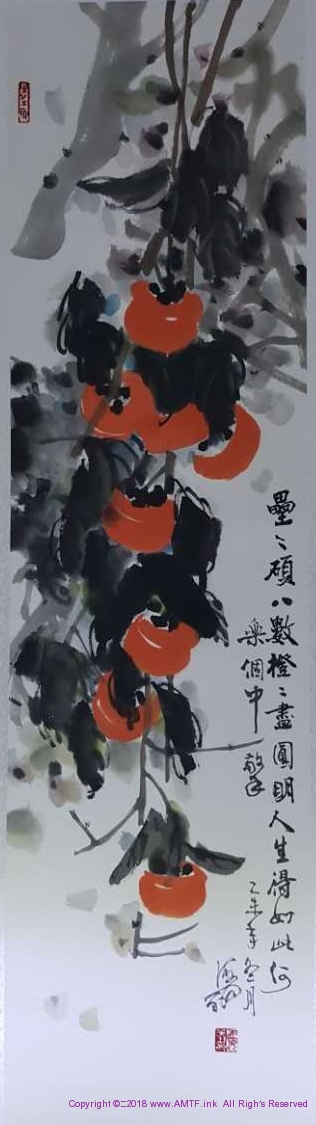 壘〻碩八數橙〻盡圓明人生得如此何
樂個中
乙未年冬月
Copyright ©2018 www.AMTF.ink All Right's Reserved